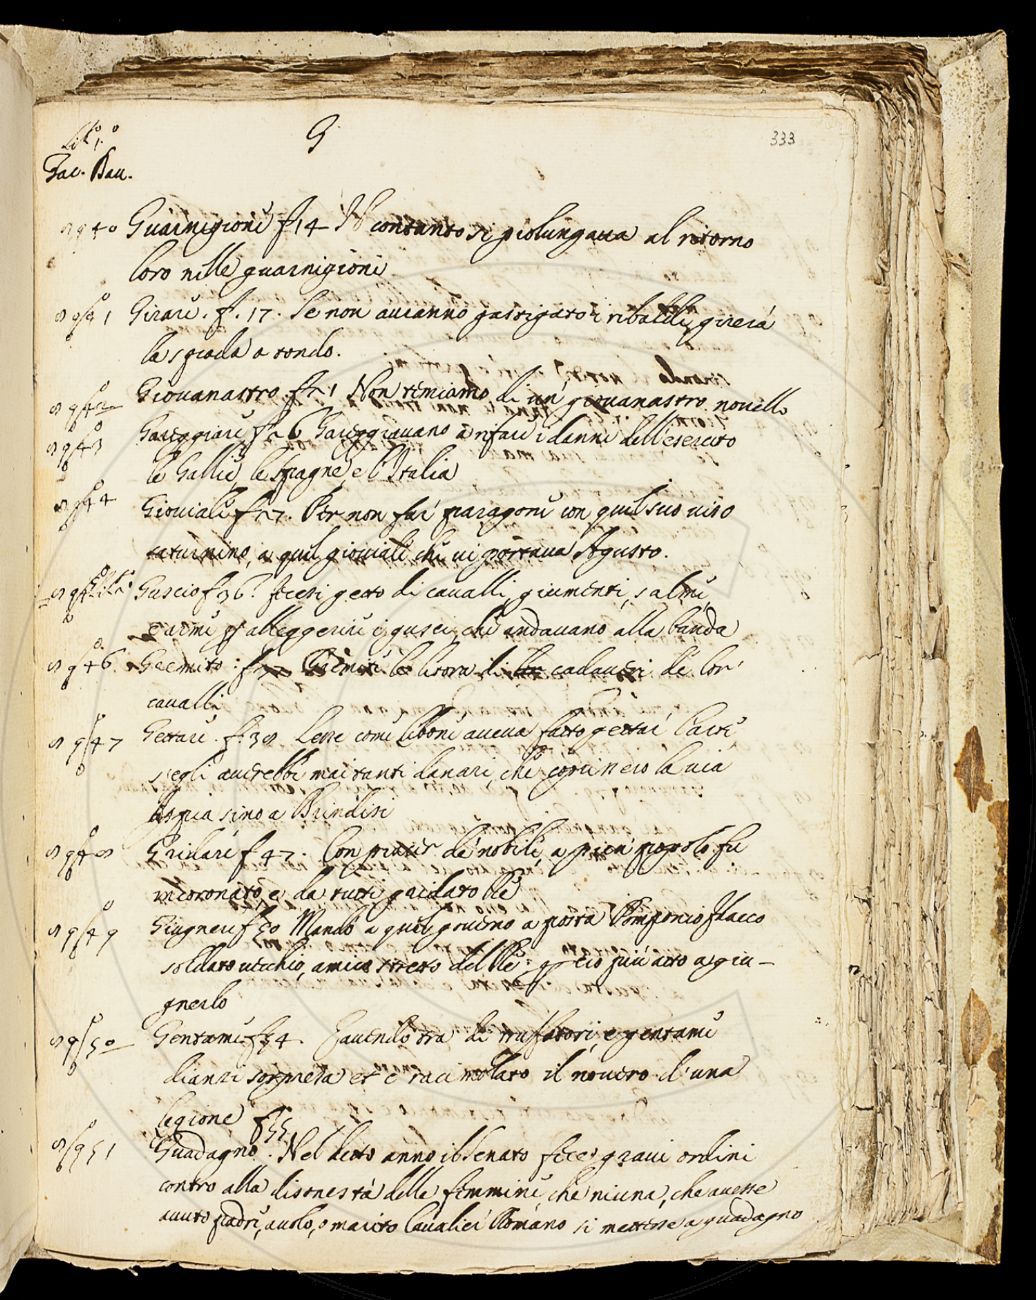 G
333
Lib.º 1.º
Tac. Dav.
Guarnigione f. 14 Il contanto si prolungava al ritorno
loro nelle guarnigioni
Girare. f. 17. Se non avranno gastigato i ribaldi, girerà
la spada a tondo.
Giovanastro f. 21 Non temiamo di un giovanastro novello
Gareggiare f. 26 Gareggiavano a rifare i danni dell'esercito
le Gallie, le Spagne, e l'Italia
Gioviale f. 27. Per non far paragone con quel suo viso
saturnino, a quel gioviale che vi portava Agusto.
Guscio f. 36. Fecesi getto di cavalli, giumenti, salme,
e arme p alleggerire i gusci, che andavano alla banda
Gremito: f. 37 Gremite le litora di cadaveri de lor
cavalli
Gettare. f. 38 Lesse come Libone aveva fatto gettar l'arte
s'egli avrebbe mai tanti danari, che coprissero la via
Appia sino a Brindisi
Gridare f. 47. Con de nobili, a pien popolo fu
incoronato, e da tutti gridato Re
Giugnere f. 50 Mandò a quel governo a posta Pomponio Flacco
soldato vecchio, amico stretto del Re: p ciò più atto a giu-
gnerlo
Gentame f. 54. Havendo tra de truffatori, e gentame
dianzi soppresa et e racimolato il novero d'una
legione
Guadagno. f. 55. Nel detto anno il Senato fece gravi ordini
contro alla disonestà delle femmine che niuna, che avesse
avuto padre, avolo, o marito Cavalier Romano si mettesse a guadagno